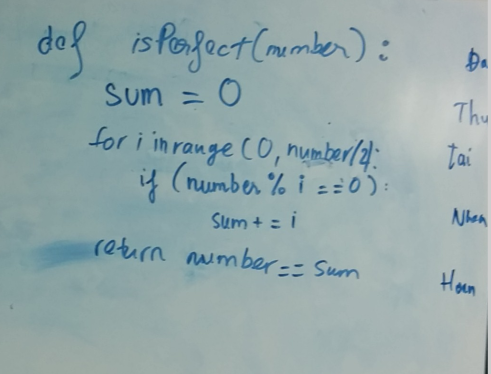 def isPerfect(number):
sum = 0
for i in range (0, number/2):
if (number % i == 0):
sum += i
return number == sum
Thu
Tai
Nhan